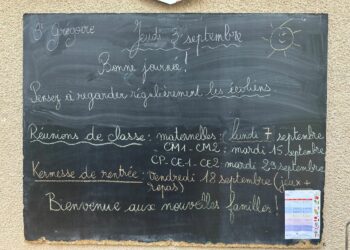 St Grégoire
Jeudi 3 septembre
Bonne journée!
Pensez à regarder régulièrement les écoliens
Réunions de classe : maternelles : lundi 7 septembre
CM1 - CM2 : mardi 15 septembre
CP-CE1-CE2 mardi 29 septembre
Kermesse de rentrée : vendredi 18 septembre (jeux +
repas)
Bienvenue aux nouvelles familles!